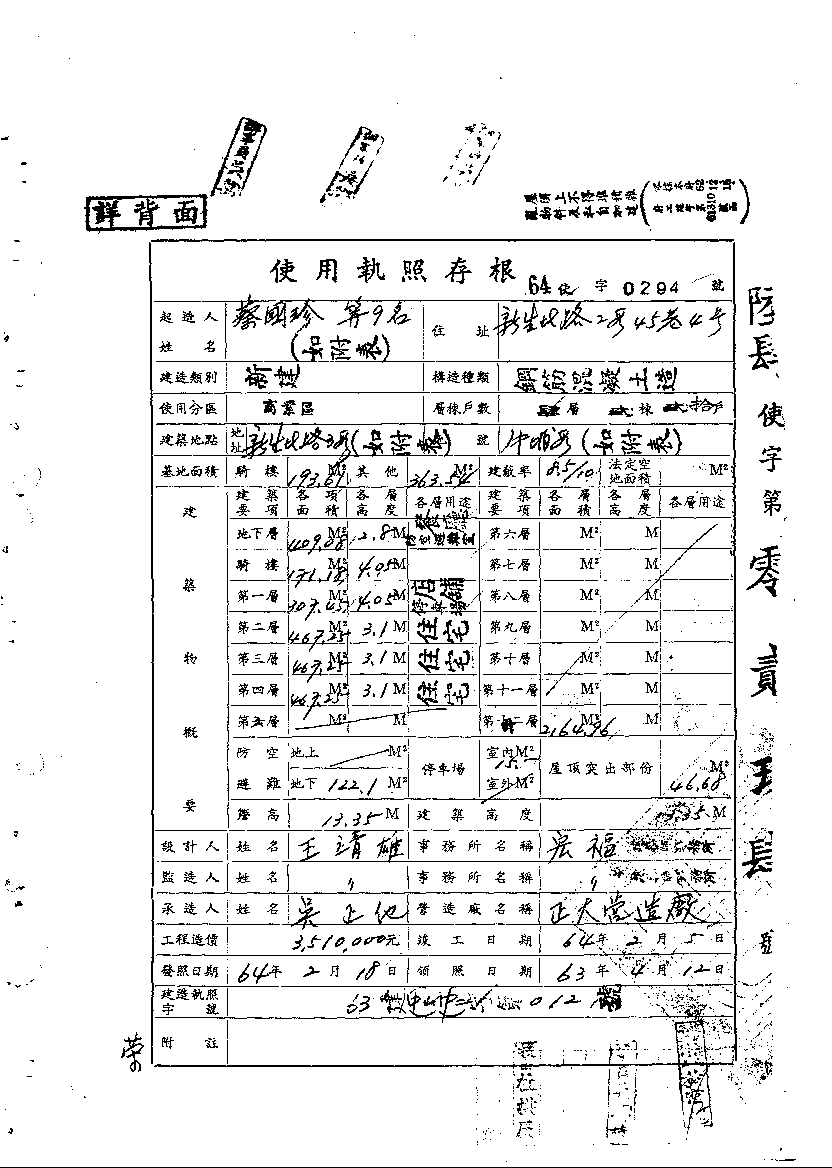 詳背面
屋頂上不得堆積雜
使用執照存根
64使字0294號
起造人姓名 蔡國珍 等9名 (如附表) 住址 新生北路2段45巷4号
建造類別 新建 構造種類 鋼筋混凝土造
使用分區 商業區 層棟戶數 層 棟 拾戶
建築地點 地址 新生北路2段(如附表) 號 (如附表)
基地面積 騎樓 193.69 M² 其他 363.54 M² 建蔽率 8.5/10 法定空地面積 M²
建築物概要
建築要項 各項面積 各層高度 各層用途 建築要項 各層面積 各層高度 各層用途
地下層 409.08 M² 2.8 M 第六層 M² M
騎樓 171.18 M² 4.05 M 第七層 M² M
第一層 307.45 M² 4.05 M 店舖 停車場 第八層 M² M
第二層 467.25 M² 3.1 M 住宅 第九層 M² M
第三層 467.25 M² 3.1 M 住宅 第十層 M² M
第四層 467.25 M² 3.1 M 住宅 第十一層 M² M
第五層 M² M 2,164.96 M² M
防空避難 地上 M² 停車場 室內 M² 屋頂突出部份 46.68 M²
地下 122.1 M² 室外 M²
簷高 13.35 M 建築高度 M
設計人 姓名 王靖雄 事務所名稱 宏福
監造人 姓名 〃 事務所名稱 〃
承造人 姓名 吳正 營造廠名稱 正大營造廠
工程造價 3,510,000元 竣工日期 64年2月5日
發照日期 64年2月18日 領照日期 63年4月12日
建造執照字號 63 012 號
附註
使字第零貳
號